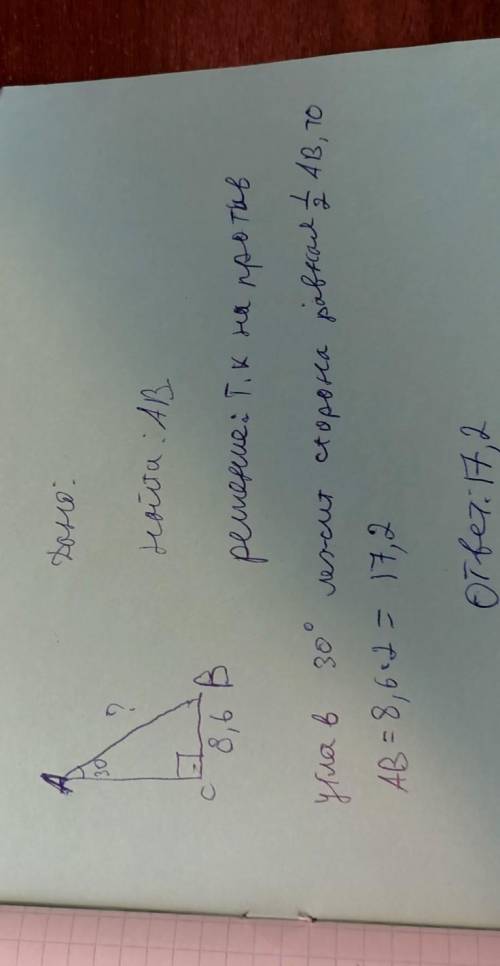 Дано:
A
30
?
C
8,6
B
Найти: AB
решение: Т.к на против
угла в 30° лежит сторона равная 1/2 AB, то
AB = 8,6·2 = 17,2
Ответ: 17,2